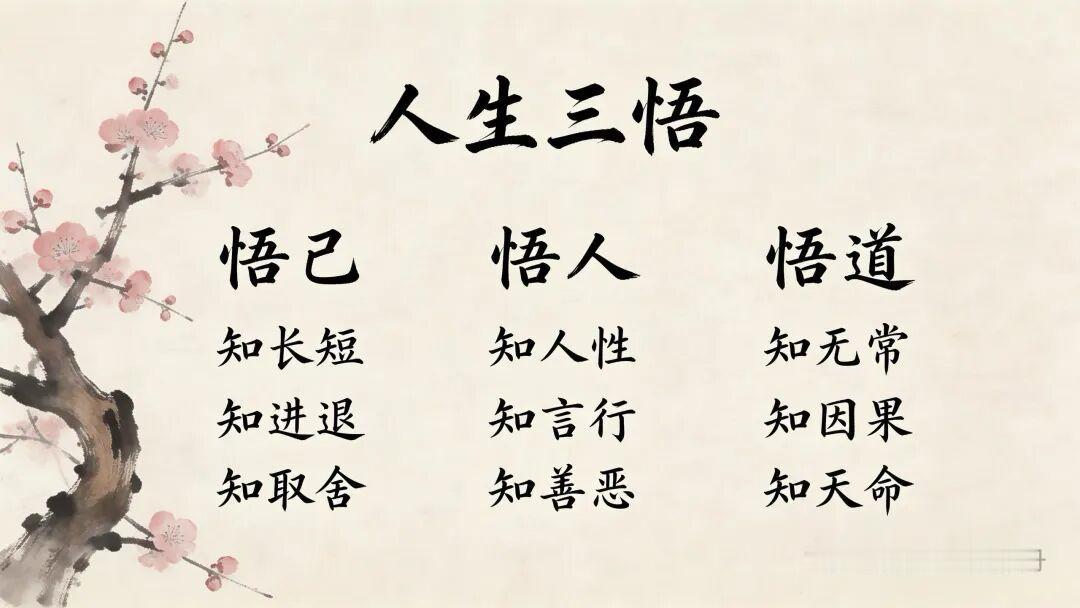 人生三悟
悟己
知长短
知进退
知取舍
悟人
知人性
知言行
知善恶
悟道
知无常
知因果
知天命